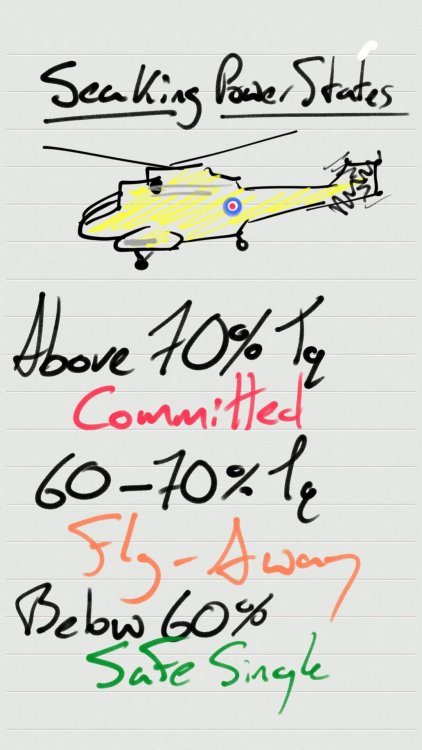 Sea King Power States
Above 70% Tq
Committed
60-70% Tq
Fly-Away
Below 60%
Safe Single